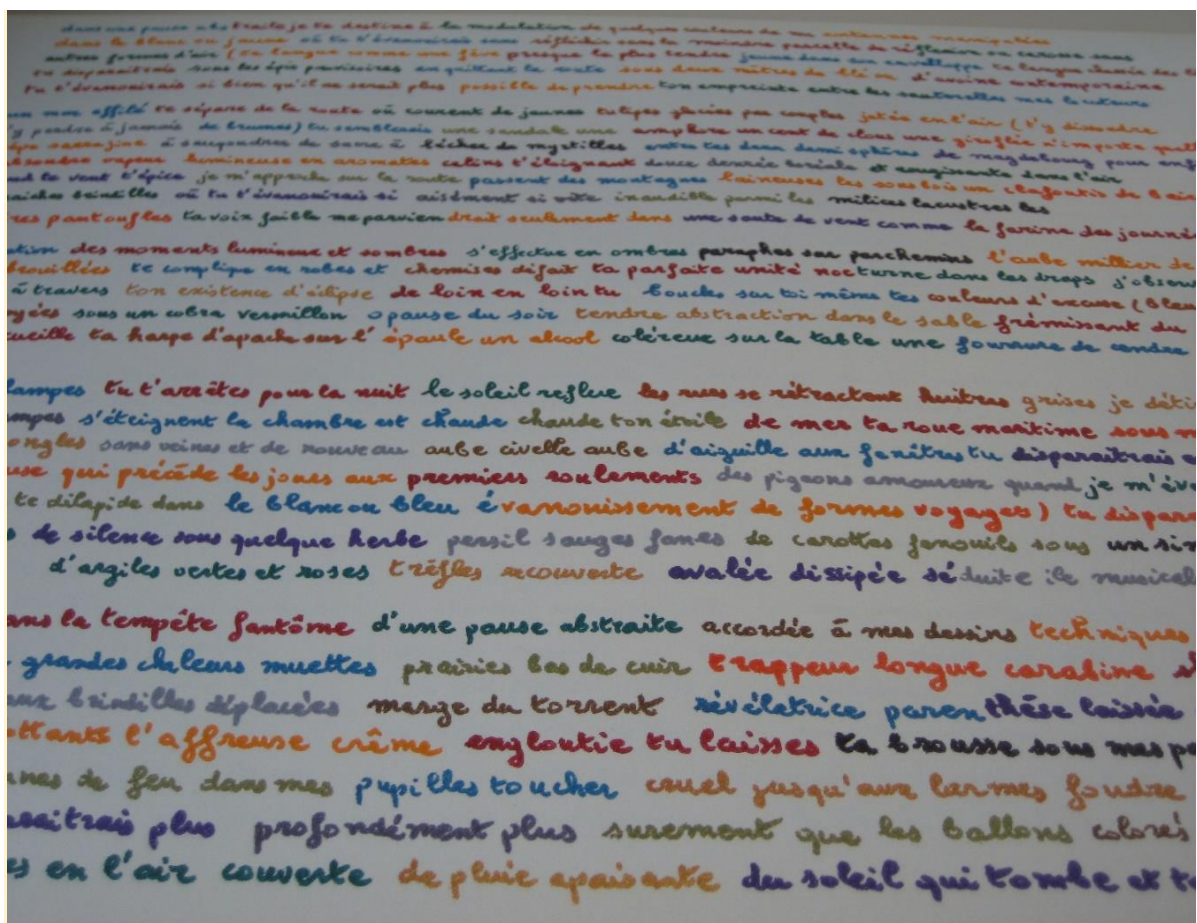 dans une pause abstraite je te destine à la modulation de quelques couleurs de ma
dans le blanc ou jaune où tu t'évanouirais sans réfléchir sous la moindre parcelle de réflexion ou encore sous
autres formes d'air ( ta langue comme une fève presque la plus tendre jeune dans son enveloppe ta langue
tu disparaitrais sous les épis provisoires en quittant la route sous deux mètres de blé ou d'avoine contemporaine
tu t'évanouirais si bien qu'il ne serait plus possible de prendre ton empreinte entre les sauterelles mes locuteurs
affilé te sépare de la route où courent de jaunes tulipes glacées par couples jetées en l'air ( t'y dissoudre
y perdre à jamais de brumes ) tu semblais une sandale une amphore un cent de clous une giroflée n'importe
sarrazine à saupoudrer de sucre à lécher de myrtilles entre tes deux demi sphères de magdebourg pour
vapeur lumineuse en aromates calins t'éloignant douce denrée boréale et rougissante dans l'air
le vent t'épice je m'approche sur la route passent des montagnes laineuses les sous bois un clafoutis de
brindilles où tu t'évanouirais si aisément si vite inaudible parmi les milices lacustres les
pantoufles ta voix faible me parviendrait seulement dans une saute de vent comme la farine des
des moments lumineux et sombres s'effectue en ombres paraphes sur parchemins l'aube millier de
brouillées te complique en robes et chemises défait ta parfaite unité nocturne dans les draps
à travers ton existence d'élipse de loin en loin tu boucles sur toi même tes couleurs d'excuse (
sous un cobra vermillon o pause du soir tendre abstraction dans le sable frémissant du
ta harpe d'apache sur l'épaule un alcool coléreux sur la table une fourrure de cendre
lampes tu t'arrêtes pour la nuit le soleil reflue les rues se rétractent huitres grises je
s'éteignent la chambre est chaude chaude ton étoile de mer ta roue maritime sous
ongles sans veines et de nouveau aube civelle aube d'aiguille aux fenêtres tu disparaitrais
qui précède les jours aux premiers roulements des pigeons amoureux quand je
te dilapide dans le blanc ou bleu évanouissement de formes voyages ) tu
de silence sous quelque herbe persil sauges fanes de carottes fenouils sous un
d'argiles vertes et roses trèfles recouverte avalée dissipée séduite ile
la tempête fantôme d'une pause abstraite accordée à mes dessins techniques
grandes chaleurs muettes prairies bas de cuir trappeur longue carabine
brindilles déplacées marge du torrent révélatrice parenthèse laissée
l'affreuse crême engloutie tu laisses ta brousse sous mes
de feu dans mes pupilles toucher cruel jusqu'aux larmes foudre
plus profondément plus surement que les ballons colorés
en l'air couverte de pluie apaisante du soleil qui tombe et